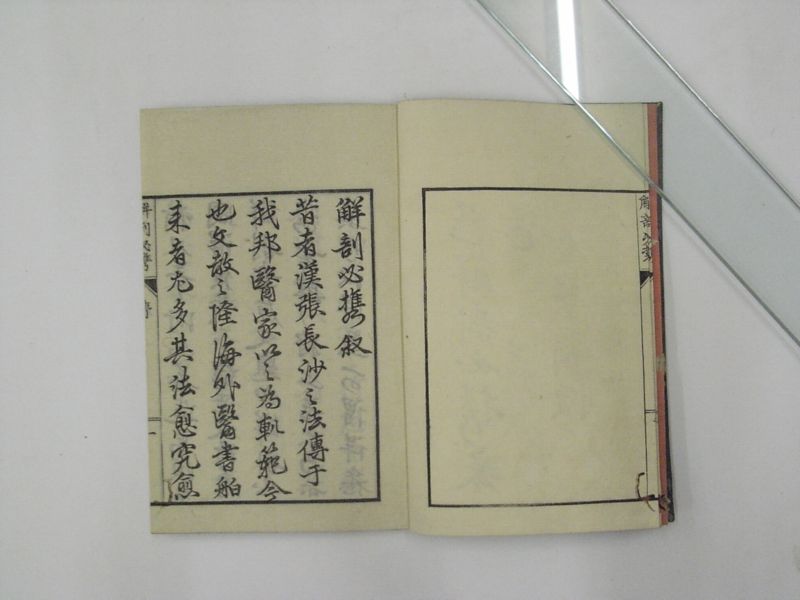 解剖必携
解剖必携叙
昔者漢張長沙之法傳于
我邦醫家以之為軌範今
也文敎之隆海外醫書舶
来者尤多其法愈究愈
解剖必携